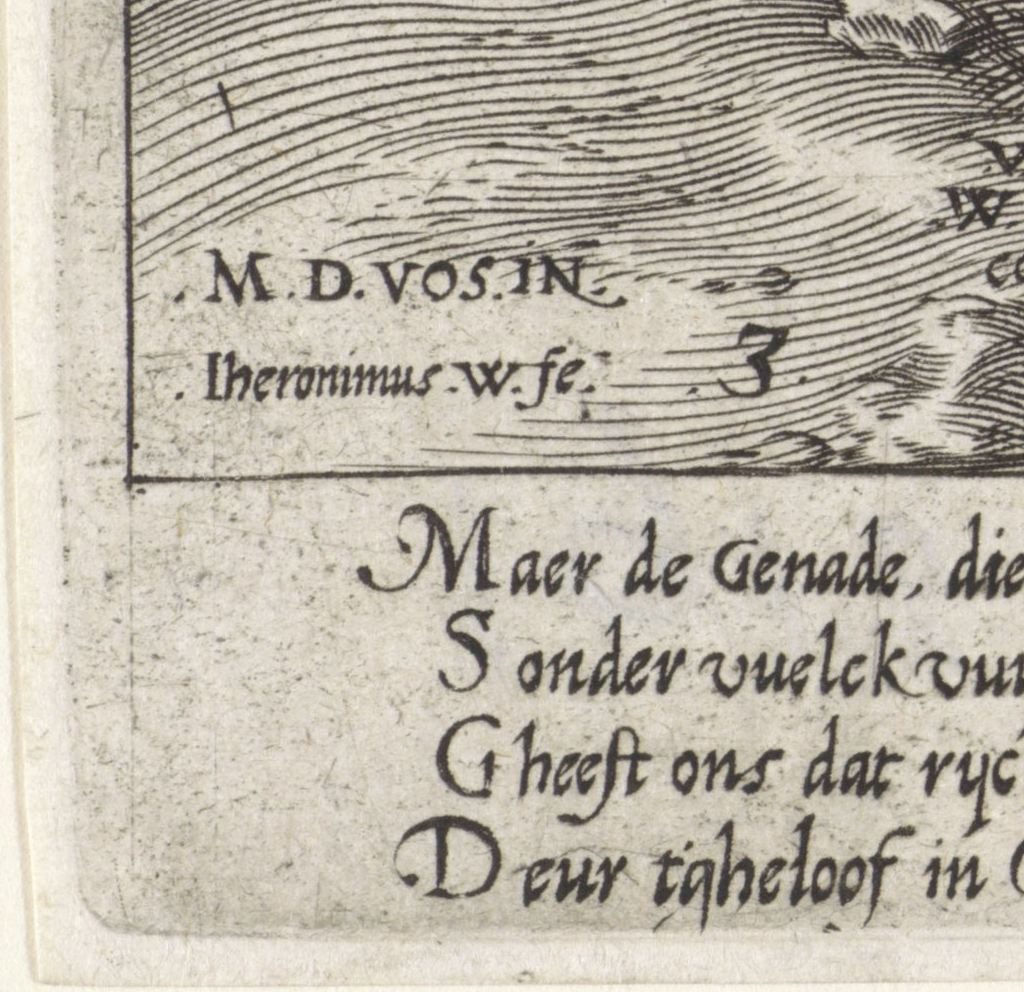 . M. D. VOS. IN.
. Iheronimus. W. fe.
. 3 .
V
W
CO
Maer de Genade, die
Sonder vuelck vu
Gheeft ons dat ryc
Deur t'gheloof in